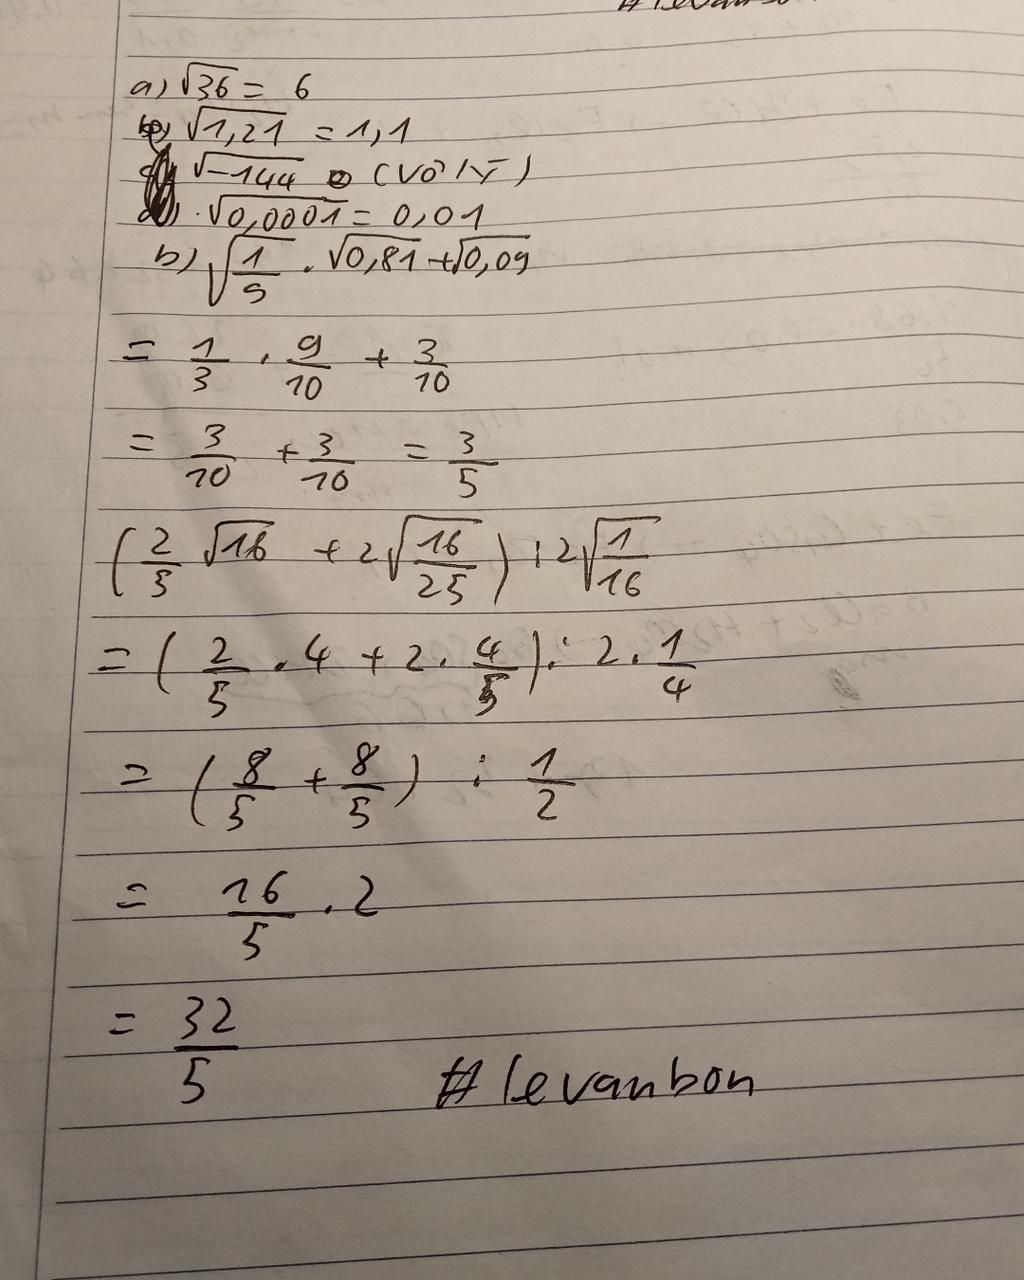 a) √36 = 6
√1,21 = 1,1
√-144 (VÔ LÝ)
√0,0001 = 0,01
b) √(1/9) . √0,81 + √0,09
= 1/3 . 9/10 + 3/10
= 3/10 + 3/10 = 3/5
(2/5 √16 + 2√(16/25)) : 2√(1/16)
= (2/5 . 4 + 2 . 4/5) : 2 . 1/4
= (8/5 + 8/5) : 1/2
= 16/5 . 2
= 32/5
# levanbon